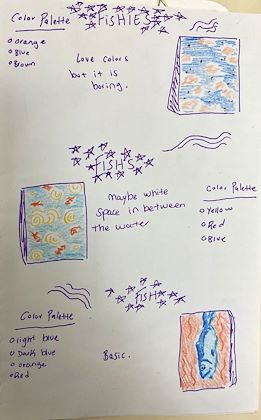 Color Palette
FISHIES
Orange
Blue
Brown
Love colors
but it is
boring.
FISH'S
Maybe white
space in between
the water
Color Palette
Yellow
Red
Blue
FISH
Color Palette
light blue
Dark blue
orange
Red
Basic.